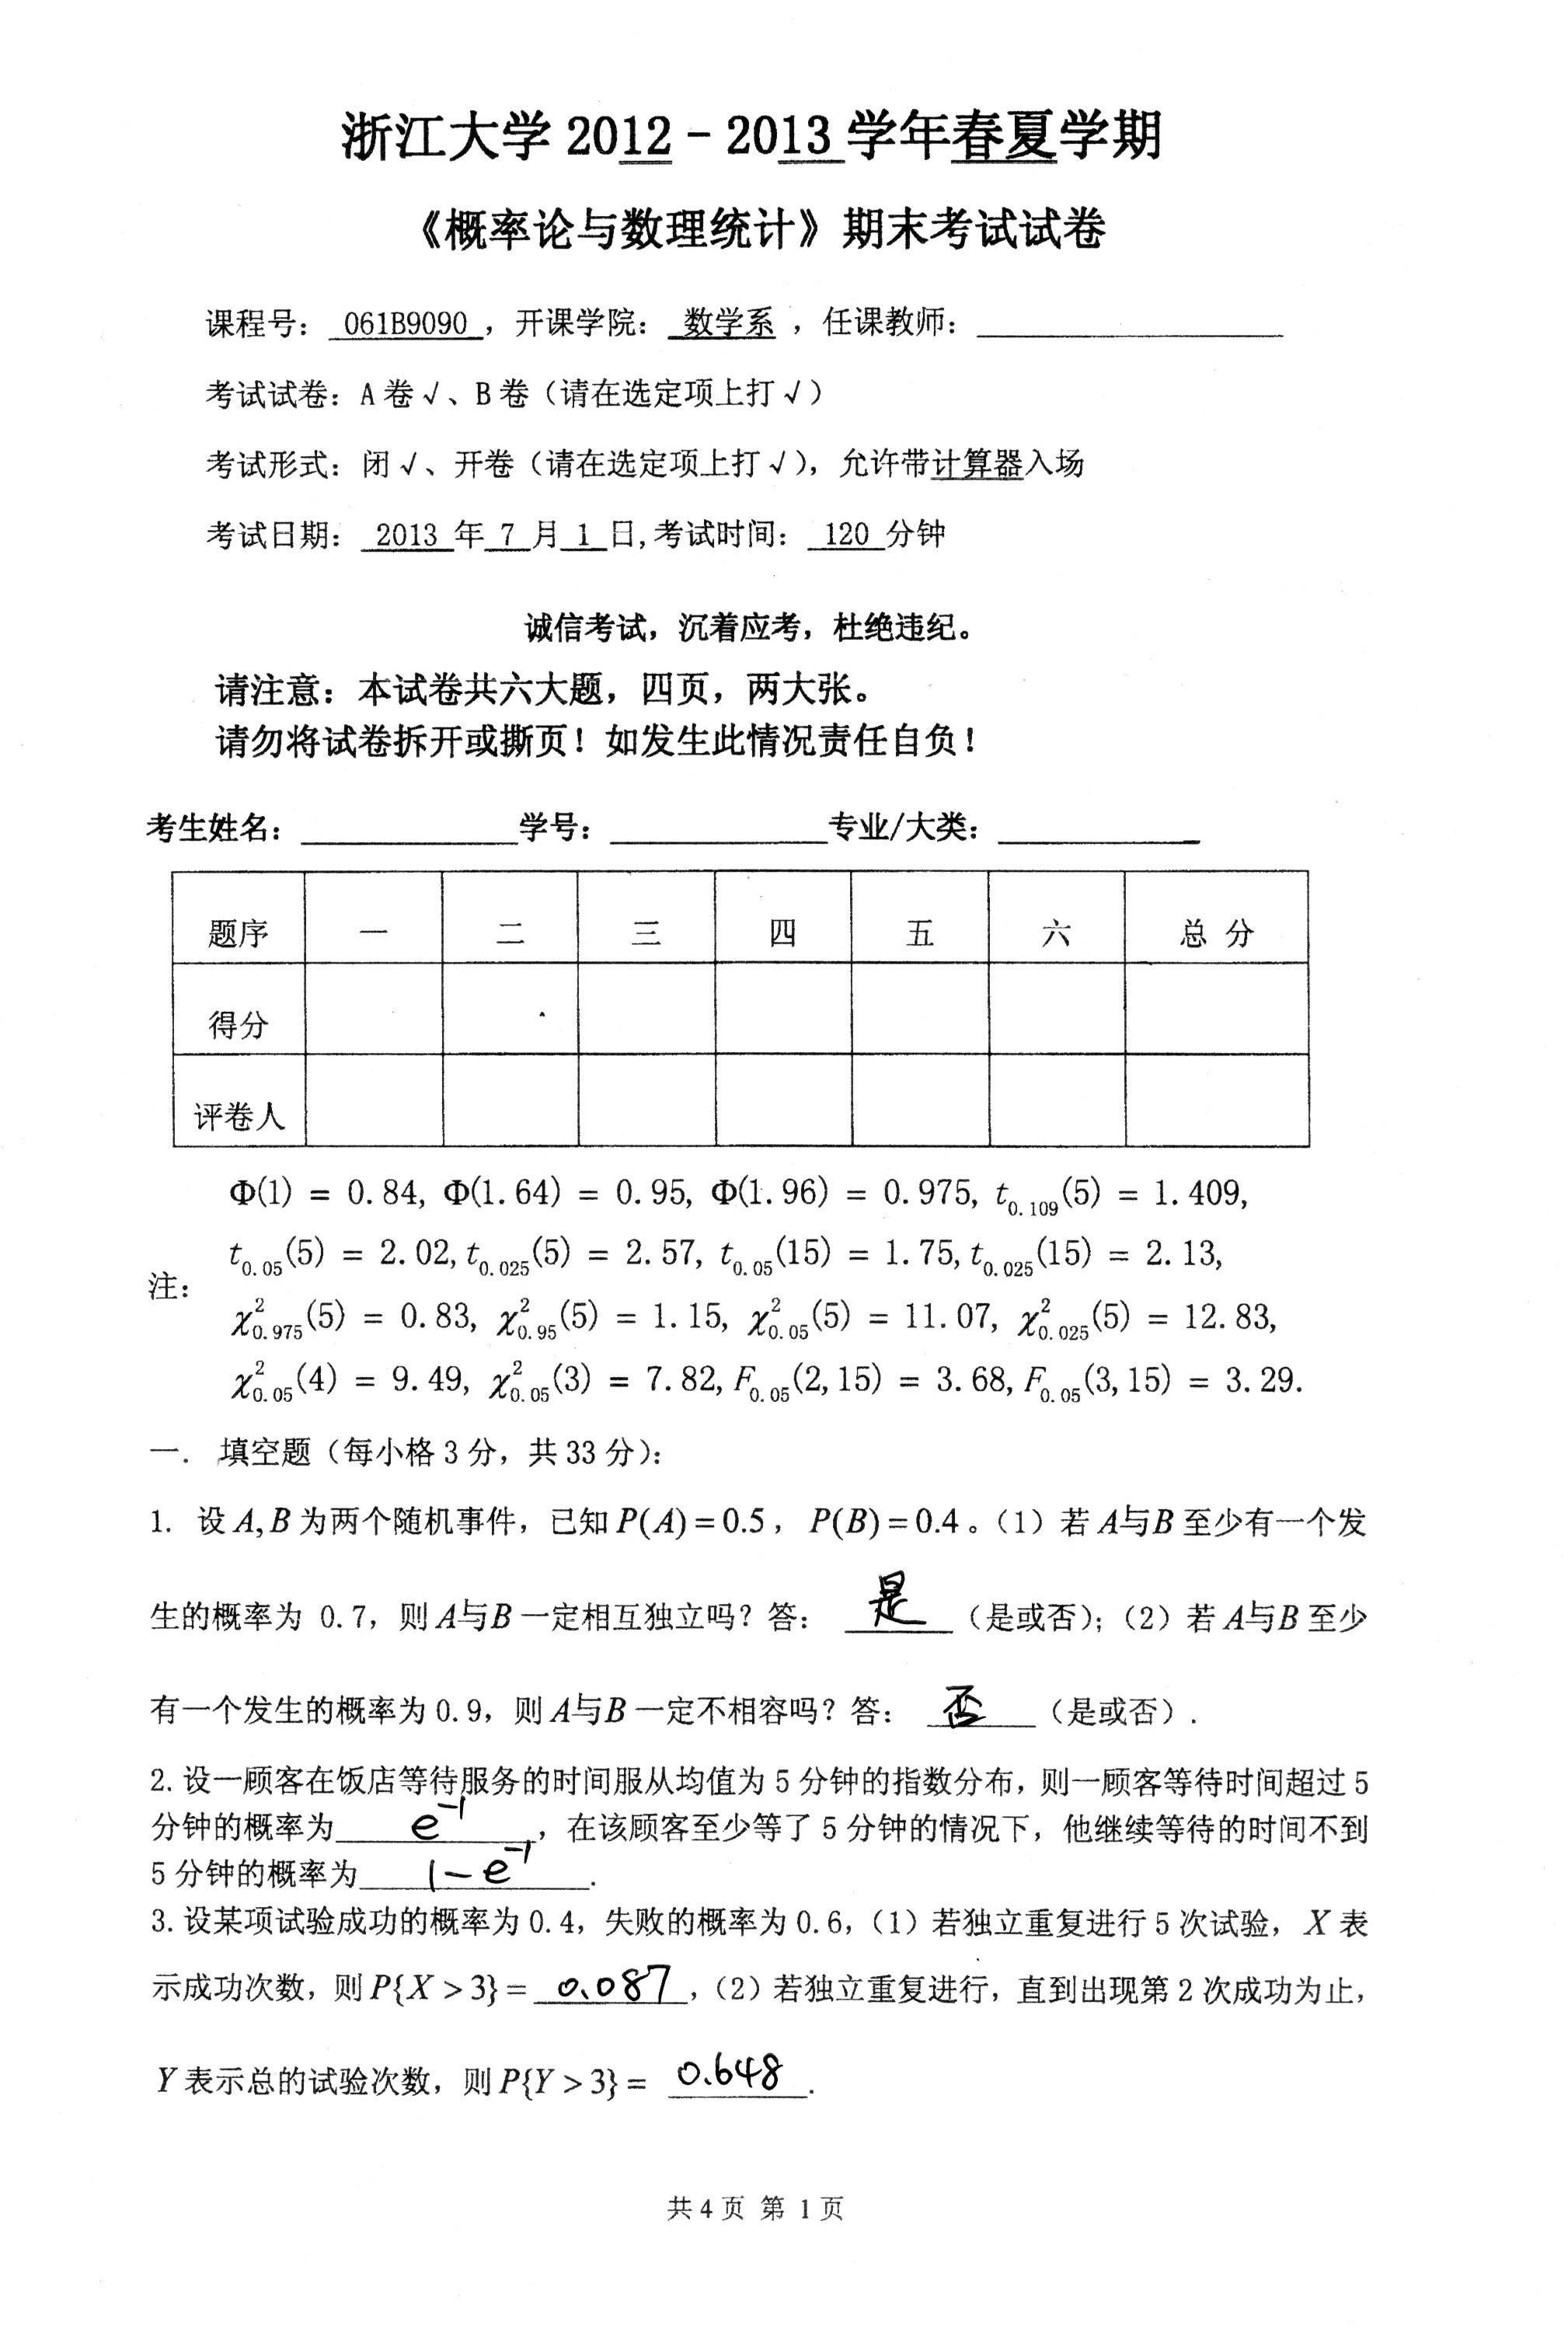 浙江大学 2012－2013 学年春夏学期
《概率论与数理统计》期末考试试卷
课程号： 061B9090 ，开课学院： 数学系 ，任课教师：
考试试卷：A 卷√、B 卷（请在选定项上打√）
考试形式：闭√、开卷（请在选定项上打√），允许带计算器入场
考试日期： 2013 年 7 月 1 日,考试时间： 120 分钟
诚信考试，沉着应考，杜绝违纪。
请注意：本试卷共六大题，四页，两大张。
请勿将试卷拆开或撕页！如发生此情况责任自负！
考生姓名： 学号： 专业/大类：
题序 一 二 三 四 五 六 总 分
得分
评卷人
注：
Φ(1) = 0.84, Φ(1.64) = 0.95, Φ(1.96) = 0.975, t_{0.109}(5) = 1.409,
t_{0.05}(5) = 2.02, t_{0.025}(5) = 2.57, t_{0.05}(15) = 1.75, t_{0.025}(15) = 2.13,
χ²_{0.975}(5) = 0.83, χ²_{0.95}(5) = 1.15, χ²_{0.05}(5) = 11.07, χ²_{0.025}(5) = 12.83,
χ²_{0.05}(4) = 9.49, χ²_{0.05}(3) = 7.82, F_{0.05}(2,15) = 3.68, F_{0.05}(3,15) = 3.29.
一． 填空题（每小格 3 分，共 33 分）：
1. 设 A,B 为两个随机事件，已知 P(A)=0.5， P(B)=0.4。（1）若 A与B 至少有一个发
生的概率为 0.7，则 A与B 一定相互独立吗？答： 是 （是或否）；（2）若 A与B 至少
有一个发生的概率为 0.9，则 A与B 一定不相容吗？答： 否 （是或否）.
2. 设一顾客在饭店等待服务的时间服从均值为 5 分钟的指数分布，则一顾客等待时间超过 5
分钟的概率为 e⁻¹ ，在该顾客至少等了 5 分钟的情况下，他继续等待的时间不到
5 分钟的概率为 1－e⁻¹ .
3. 设某项试验成功的概率为 0.4，失败的概率为 0.6，（1）若独立重复进行 5 次试验， X 表
示成功次数，则 P{X > 3} = 0.087 ，（2）若独立重复进行，直到出现第 2 次成功为止，
Y 表示总的试验次数，则 P{Y > 3} = 0.648 .
共 4 页 第 1 页